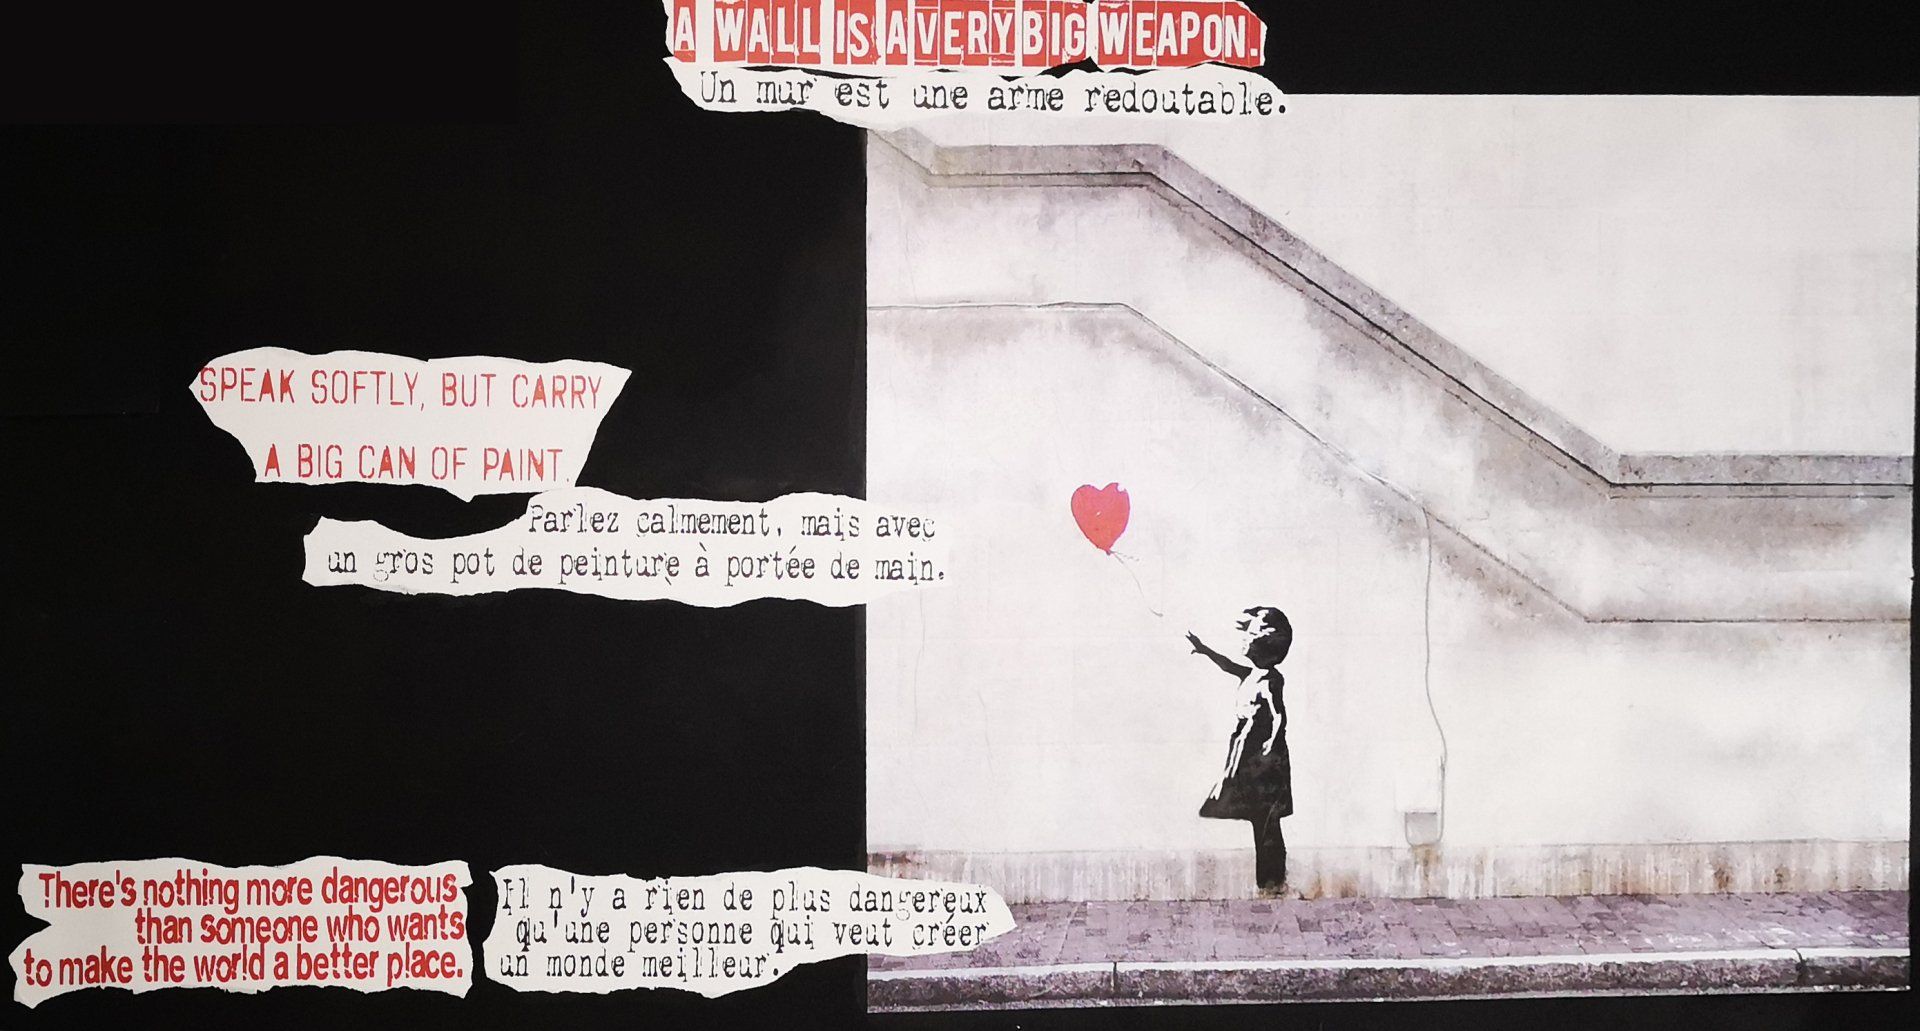 A WALL IS A VERY BIG WEAPON.
Un mur est une arme redoutable.
SPEAK SOFTLY, BUT CARRY
A BIG CAN OF PAINT.
Parlez calmement, mais avec
un gros pot de peinture à portée de main.
There's nothing more dangerous
than someone who wants
to make the world a better place.
Il n'y a rien de plus dangereux
qu'une personne qui veut créer
un monde meilleur.